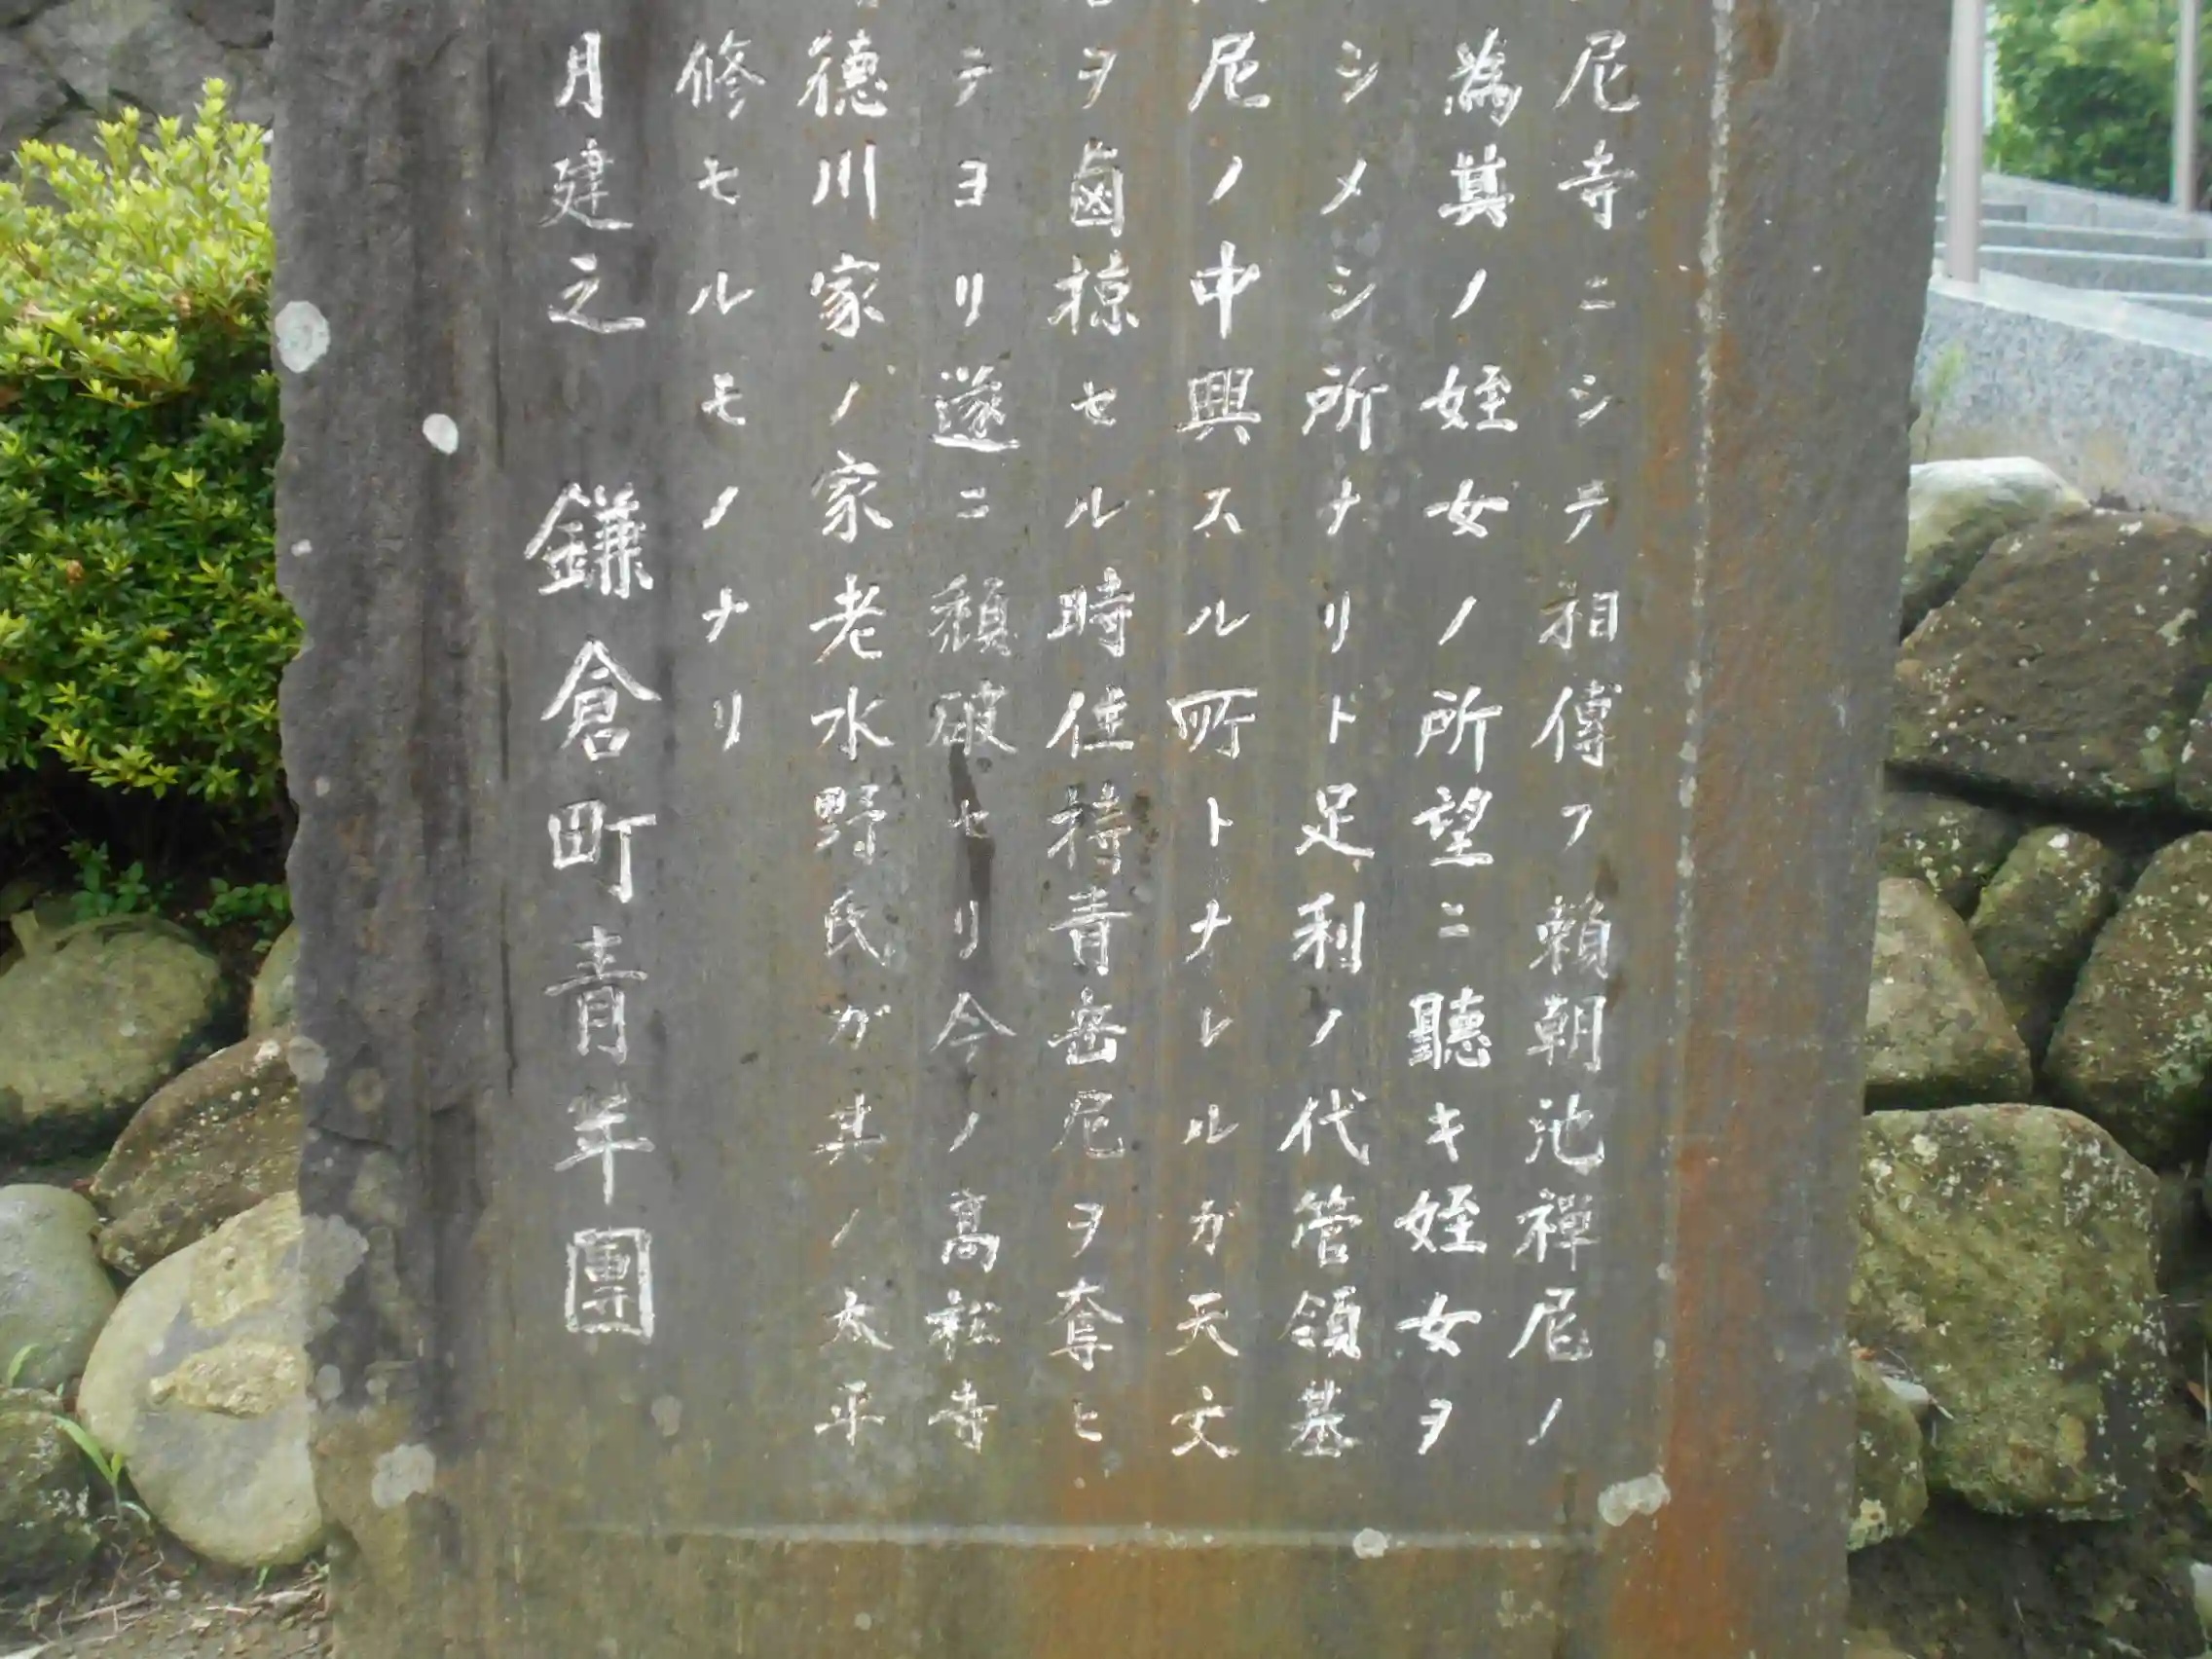 尼寺ニシテ相傳フ頼朝池禅尼ノ
為其ノ姪女ノ所望ニ聴キ姪女ヲ
シメシ所ナリト足利ノ代管領基
尼ノ中興スル所トナレルガ天文
ヲ鹵掠セル時住持青岳尼ヲ奪ヒ
テヨリ遂ニ頽破セリ今ノ高松寺
徳川家ノ家老水野氏ガ其ノ太平
修セルモノナリ
月建之 鎌倉町青年團